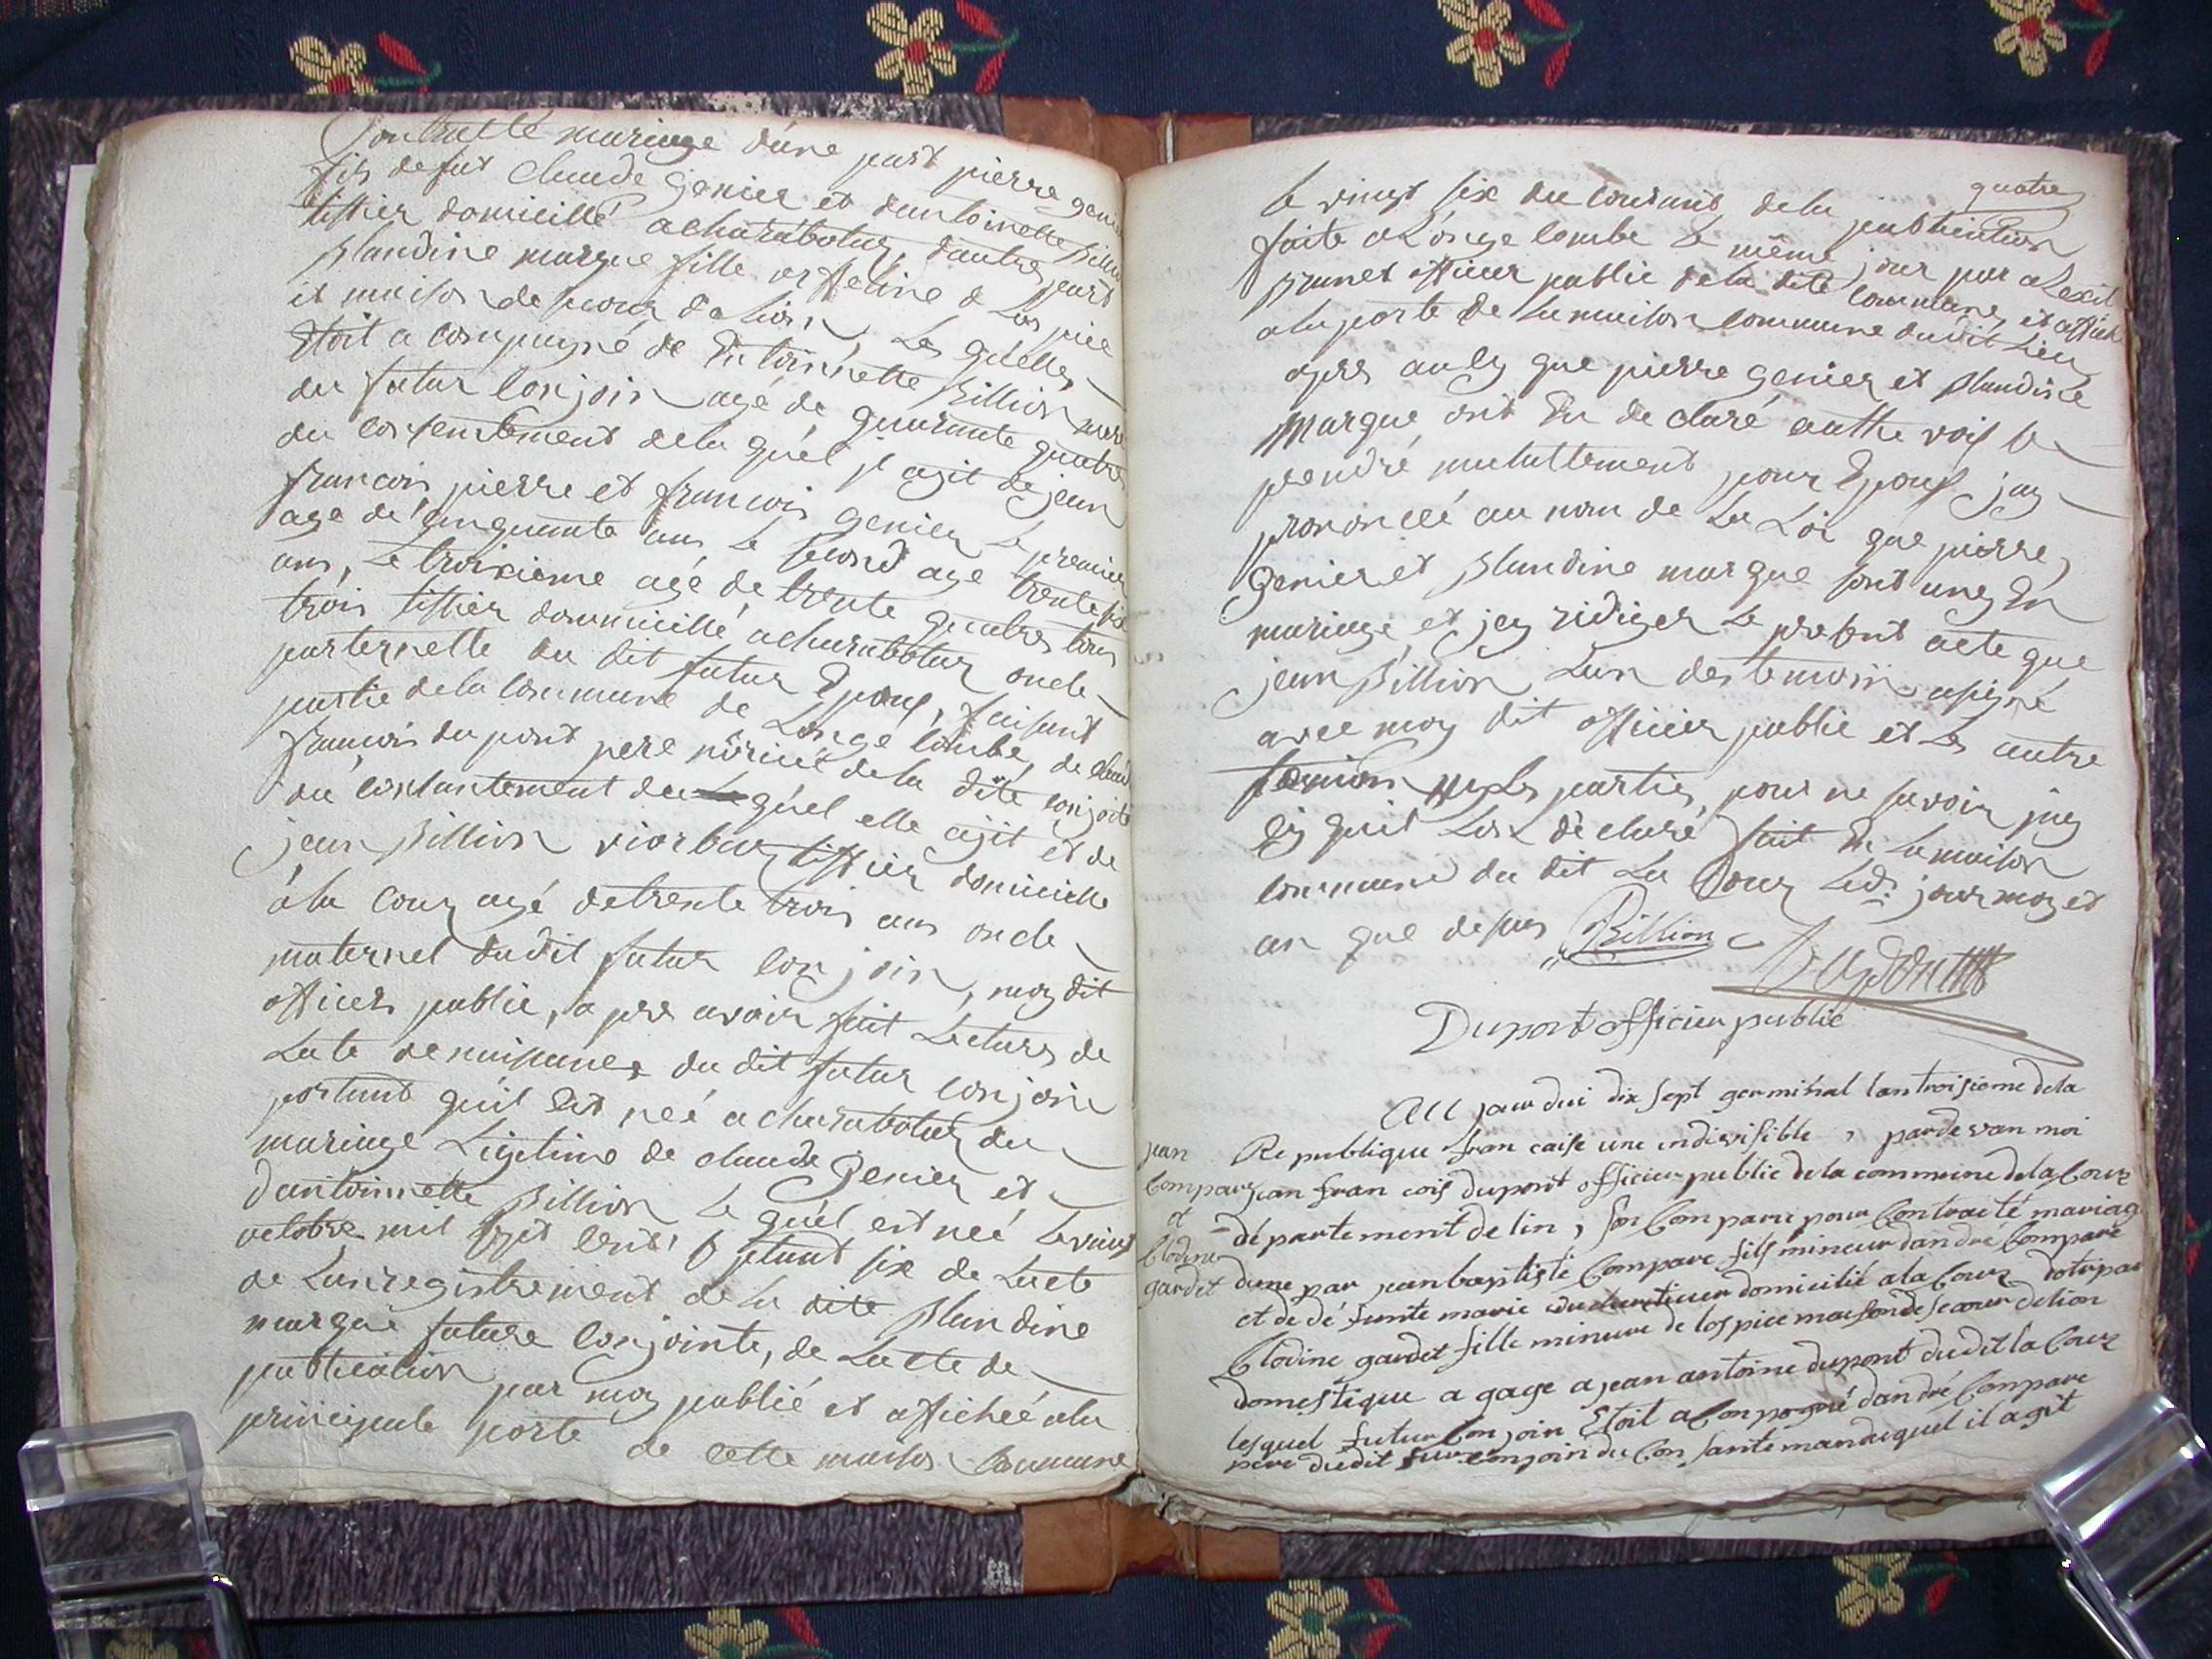 Contracté mariage dúne part pierre geni
fils defut claude genier et dantoinette Billion
tissier domicillé acharabotur, dautre part
Blandine marque fille orffeline d Los pice
et maison desecour de Lion, Les quelles
Etoit a compaigné de Entoinette Billion mere
du futur Conjoin agé de quarante quatre
du consentement dela quel jl agit de jean
francois, pierre et francois genier Le premier
agé de cinquante ans Le second age trente six
ans, Le troixieme agé de trente quatre tous
trois tissier dommicillé acharabotur oncle
parternelle du dit futur Epoux, faisant
partie dela Commune de Longe Combe, de claud
francois du pont pere noricié dela dite conjoite
du consantement du quel elle agit et de
jean Billion tissier domicielle
a la cour agé detrente trois ans oncle
maternel dudit futur Con join, moy dit
officier public, a pres avoir fait Lecture de
Lacte denaissance du dit futur Conjoin
portant qúil Est neé a charabotur du
mariage Ligitime de claude Genier et
dantoinnette Billion Le quel est neé Le vingt
octobre mil sept cent septant six de Lacte
de Lanregistrement de la dite Blandine
marque future Conjointe, de Lacte de
publication par moy publié et affichéé ala
principale porte de cette maison Commune
quatre
le vingt six du Courant, dela publication
faite a Longe Combe Le même jour par alexil
Brunet officier public dela dite Commune, et affiché
ala porte de La maison Commune dudit Lieu
apres aussy que pierre genier et Blandine
Marque ont En de claré authe voix se
prendre mututtement pour Epoux jay
prononcéé au nom de La Loi que pierre
Genier et Blandine marque sont uny En
mariage, et jay ridiger Le present acte que
jean Billion, Lun des temoin asigné
avec moy dit officier public et Les autre
temoin Les parties, pour ne savoir
quil Lon dèclaré fait En La maison
commune du dit La Cour Led: jour moy et
an que dessus Billion
Dupont
Dupont officier public
Au jour dui dix sept germinal lan troisieme dela
Republique fran caise une indivisible, pardevan moi
jean fran cois dupont officier public dela commune dela Cour
département de lin, son Comparu pour Contracté mariag
dune par jean baptiste Compare fils mineur dandré Compare
et de dé funte marie domicilié ala Cour dotrpar
Clodine gardet fille mineure de lospice maisondesecour delion
domestique a gage a jean antoine dupont dudit la Cour
lesquel futur Con join Etoit a Con pagné dandré Compare
pere dudit fur conjoin du Con santemanduquel il agit
jean
Compare
et
Clodine
gardet